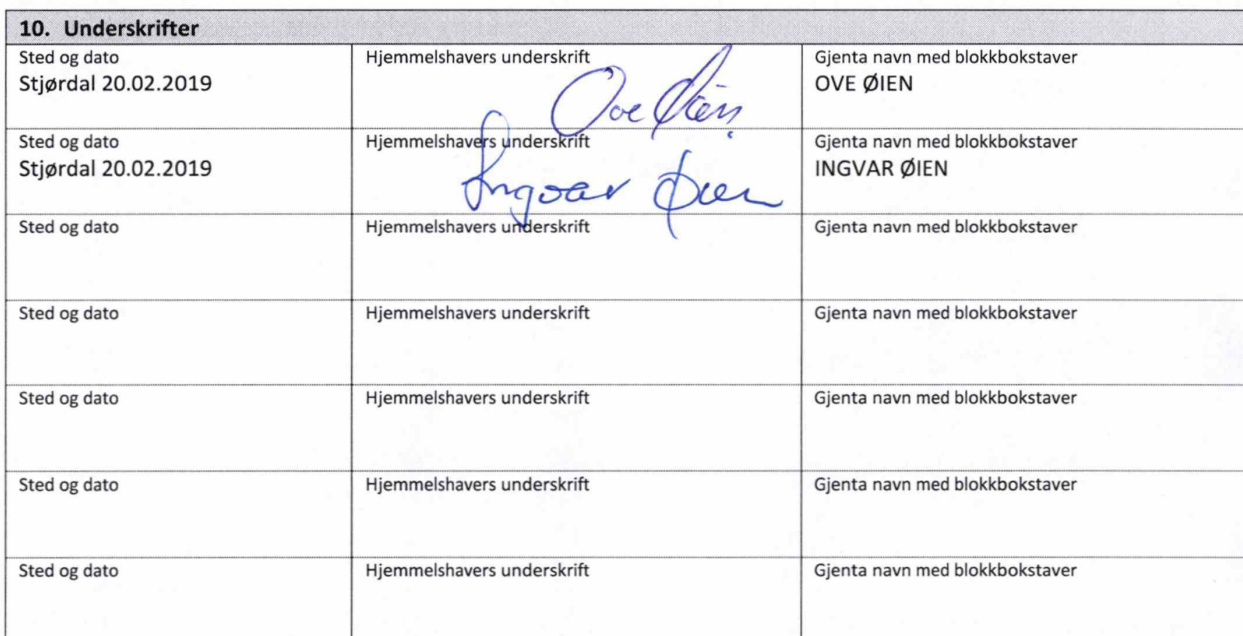 10. Underskrifter
Sted og dato
Stjørdal 20.02.2019
Hjemmelshavers underskrift
Ove Øien
Gjenta navn med blokkbokstaver
OVE ØIEN
Sted og dato
Stjørdal 20.02.2019
Hjemmelshavers underskrift
Ingvar Øien
Gjenta navn med blokkbokstaver
INGVAR ØIEN
Sted og dato
Hjemmelshavers underskrift
Gjenta navn med blokkbokstaver
Sted og dato
Hjemmelshavers underskrift
Gjenta navn med blokkbokstaver
Sted og dato
Hjemmelshavers underskrift
Gjenta navn med blokkbokstaver
Sted og dato
Hjemmelshavers underskrift
Gjenta navn med blokkbokstaver
Sted og dato
Hjemmelshavers underskrift
Gjenta navn med blokkbokstaver